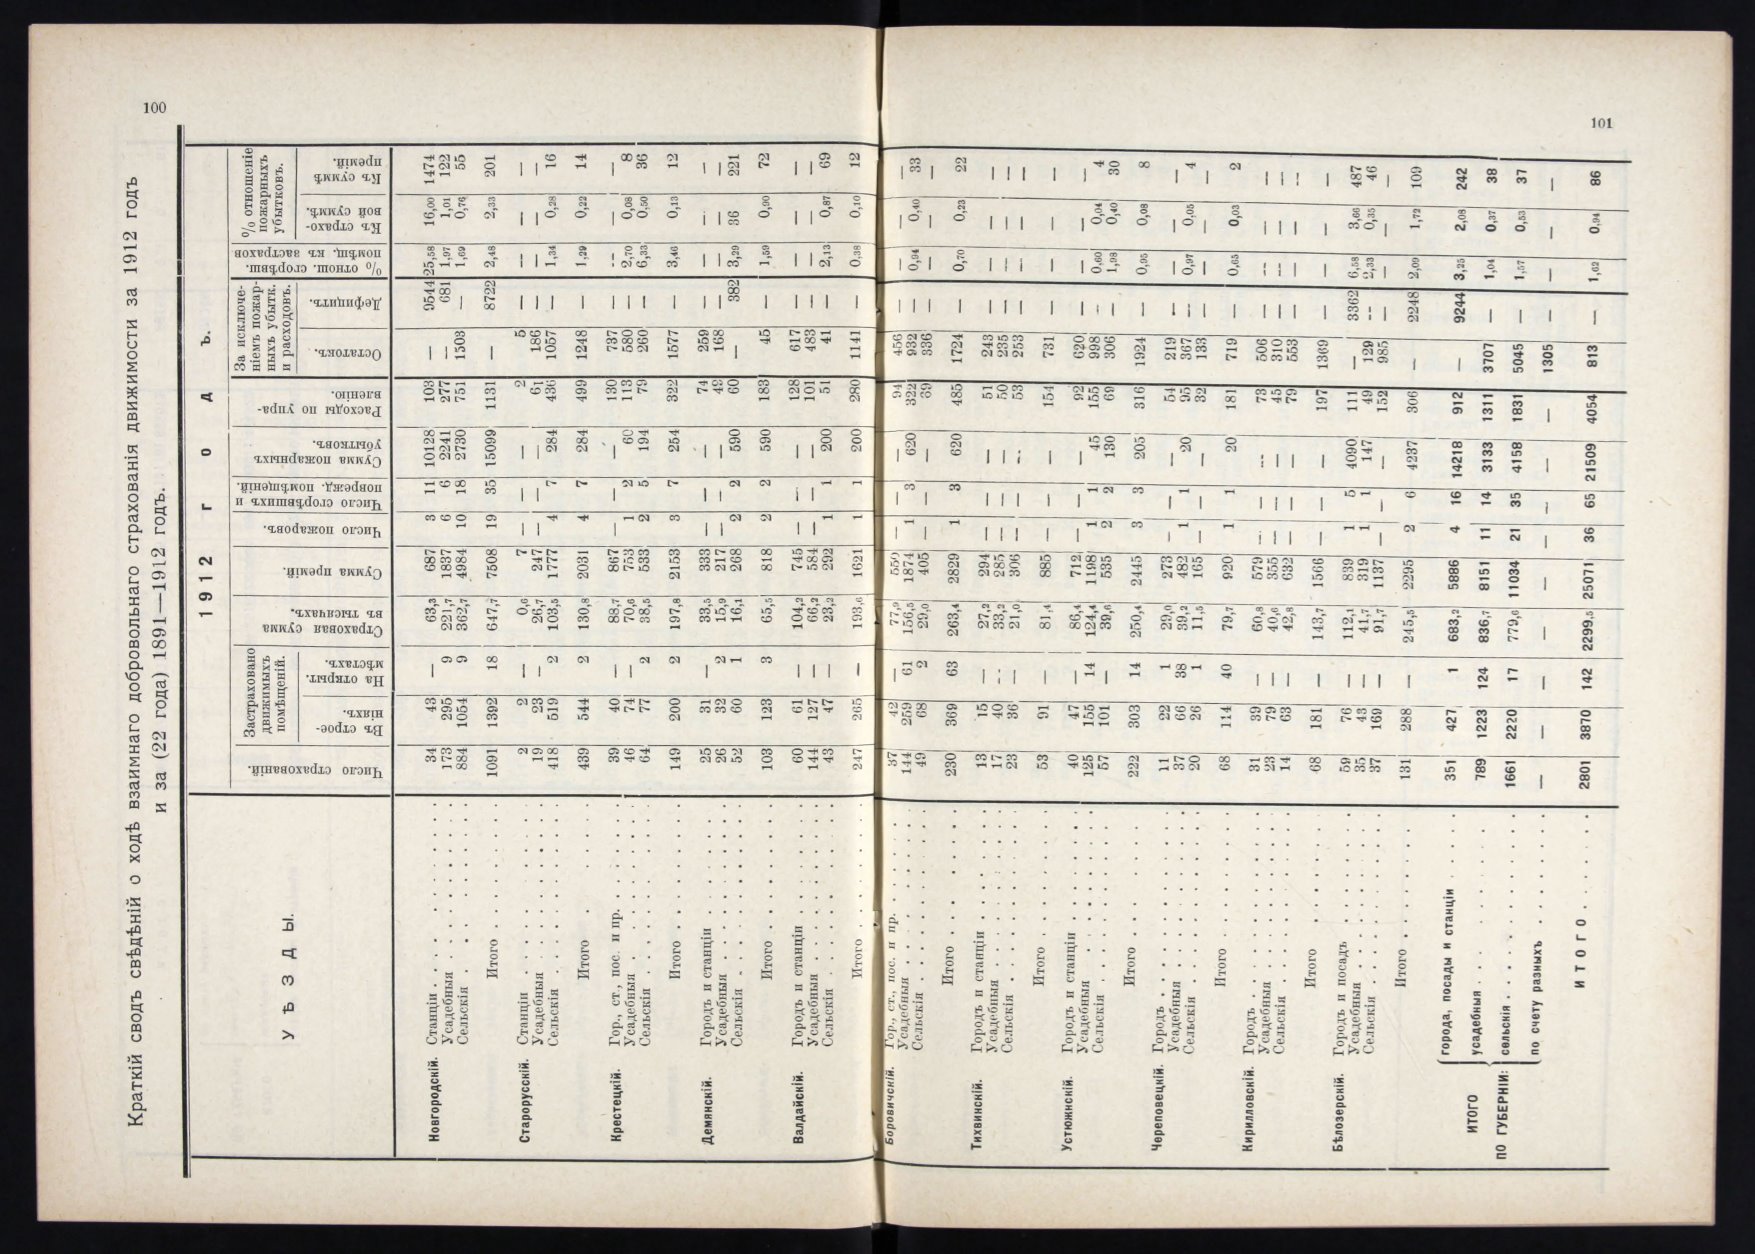 100
Краткій сводъ свѣдѣній о ходѣ взаимнаго добровольнаго страхованія движимости за 1912 годъ
и за (22 года) 1891—1912 годъ.
УѢЗДЫ.
1912 годъ.
Число страхованій.
Застраховано движимыхъ помѣщеній.
Въ строеніяхъ.
На открыт. мѣстахъ.
Страховая сумма въ тысячахъ.
Сумма премій.
Число пожаровъ.
Число сгорѣвшихъ и поврежд. помѣщеній.
Сумма пожарныхъ убытковъ.
Расходы по управленію.
За исключеніемъ пожарныхъ убытк. и расходовъ.
Остатокъ.
Дефицитъ.
% отнош. сгорѣвш. помѣщ. къ застрахов
% отношеніе пожарныхъ убытковъ.
Къ страховой суммѣ.
Къ суммѣ премій.
Новгородскій. Станціи 34 43 — 63,3 687 3 11 10128 103 — 9544 25,58 16,00 1474
Усадебныя 173 295 9 221,7 1837 6 6 2241 277 — 681 1,97 1,01 122
Сельскія 884 1054 9 362,7 4984 10 18 2730 751 1503 — 1,69 0,76 55
Итого 1091 1392 18 647,7 7508 19 35 15099 1131 — 8722 2,48 2,33 201
Старорусскій. Станціи 2 2 — 0,6 7 — — — 2 5 — — — —
Усадебныя 19 23 — 26,7 247 — — — 61 186 — — — —
Сельскія 418 519 2 103,5 1777 4 7 284 436 1057 — 1,34 0,28 16
Итого 439 544 2 130,8 2031 4 7 284 499 1248 — 1,29 0,22 14
Крестецкій. Гор., ст., пос. и пр. 39 40 — 88,7 867 — — — 130 737 — — — —
Усадебныя 46 74 — 70,6 753 1 2 60 113 580 — 2,70 0,08 8
Сельскія 64 77 2 38,5 533 2 5 194 79 260 — 6,33 0,50 36
Итого 149 200 2 197,8 2153 3 7 254 322 1577 — 3,46 0,13 12
Демянскій. Городъ и станціи 25 31 — 33,5 333 — — — 74 259 — — — —
Усадебныя 26 32 2 15,9 217 — — — 49 168 — — — —
Сельскія 52 60 1 16,1 268 2 2 590 60 — 382 3,29 36 221
Итого 103 123 3 65,5 818 2 2 590 183 45 — 1,59 0,90 72
Валдайскій. Городъ и станціи 60 61 — 104,2 745 — — — 128 617 — — — —
Усадебныя 144 127 — 66,2 584 — — — 101 483 — — — —
Сельскія 43 47 — 23,2 292 1 1 200 51 41 — 2,13 0,87 69
Итого 247 265 — 193,6 1621 1 1 200 280 1141 — 0,38 0,10 12
101
Боровичскій. Гор., ст., пос. и пр. 37 42 — 77,9 550 — — — 94 456 — — — —
Усадебныя 144 259 61 156,5 1874 1 3 620 322 932 — 0,94 0,40 33
Сельскія 49 68 2 29,0 405 — — — 39 336 — — — —
Итого 230 369 63 263,4 2829 1 3 620 485 1724 — 0,70 0,23 22
Тихвинскій. Городъ и станціи 13 15 — 27,2 294 — — — 51 243 — — — —
Усадебныя 17 40 — 33,2 285 — — — 50 235 — — — —
Сельскія 23 36 — 21,0 306 — — — 53 253 — — — —
Итого 53 91 — 81,4 885 — — — 154 731 — — — —
Устюжнскій. Городъ и станціи 40 47 — 86,4 712 — — — 92 620 — — — —
Усадебныя 125 155 14 124,4 1198 1 1 45 155 998 — 0,60 0,04 4
Сельскія 57 101 — 39,6 535 2 2 130 69 306 — 1,98 0,40 30
Итого 222 303 14 250,4 2445 3 3 205 316 1924 — 0,95 0,08 8
Череповецкій. Городъ 11 22 1 29,0 273 — — — 54 219 — — — —
Усадебныя 37 66 38 39,2 482 1 1 20 95 367 — 0,97 0,05 4
Сельскія 20 26 1 11,5 165 — — — 32 133 — — — —
Итого 68 114 40 79,7 920 1 1 20 181 719 — 0,65 0,03 2
Кирилловскій. Городъ 31 39 — 60,8 579 — — — 73 506 — — — —
Усадебныя 23 79 — 40,6 355 — — — 45 310 — — — —
Сельскія 14 63 — 42,8 632 — — — 79 553 — — — —
Итого 68 181 — 143,7 1566 — — — 197 1369 — — — —
Бѣлозерскій. Городъ и посадъ 59 76 — 112,1 839 1 5 4090 111 — 3362 6,58 3,66 487
Усадебныя 35 43 — 41,7 319 1 1 147 49 129 — 2,33 0,35 46
Сельскія 37 169 — 91,7 1137 — — — 152 985 — — — —
Итого 131 288 — 245,5 2295 2 6 4237 306 — 2248 2,09 1,72 109
ИТОГО ПО ГУБЕРНІИ:
города, посады и станціи 351 427 1 683,2 5886 4 16 14218 912 — 9244 3,25 2,08 242
усадебныя 789 1223 124 836,7 8151 11 14 3133 1311 3707 — 1,04 0,37 38
сельскія 1661 2220 17 779,6 11034 21 35 4158 1831 5045 — 1,57 0,53 37
по счету разныхъ — — — — — — — — — 1305 — — — —
ИТОГО 2801 3870 142 2299,5 25071 36 65 21509 4054 813 — 1,62 0,94 86